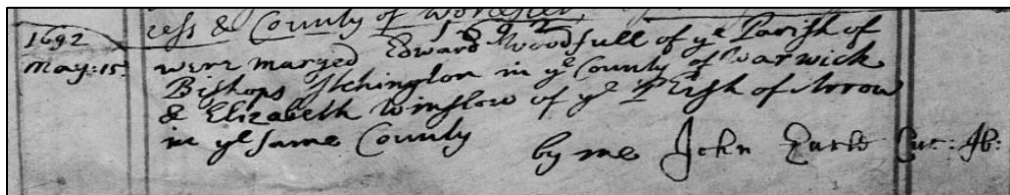 cess & County of Worcester,
1692
May: 15. were maryed Edward Woodfull of ye Parish of
Bishops Itchington in ye County of Warwick
& Elizabeth Winslow of ye Pish of Arrow
in ye same County
by me John Cur: Ab: